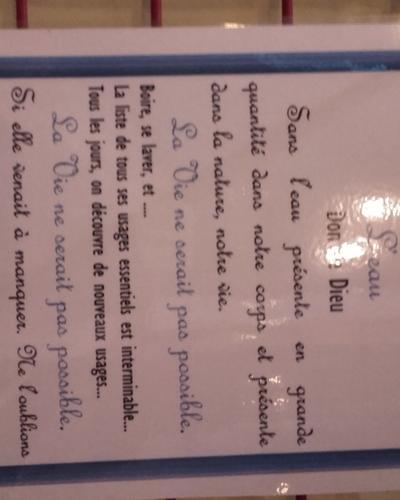 L'eau
Don de Dieu
Sans l'eau présente en grande
quantité dans notre corps, et présente
dans la nature, notre vie.
La Vie ne serait pas possible.
Boire, se laver, et ....
La liste de tous ses usages essentiels est interminable...
Tous les jours, on découvre de nouveaux usages...
La Vie ne serait pas possible.
Si elle venait à manquer. Ne l'oublions